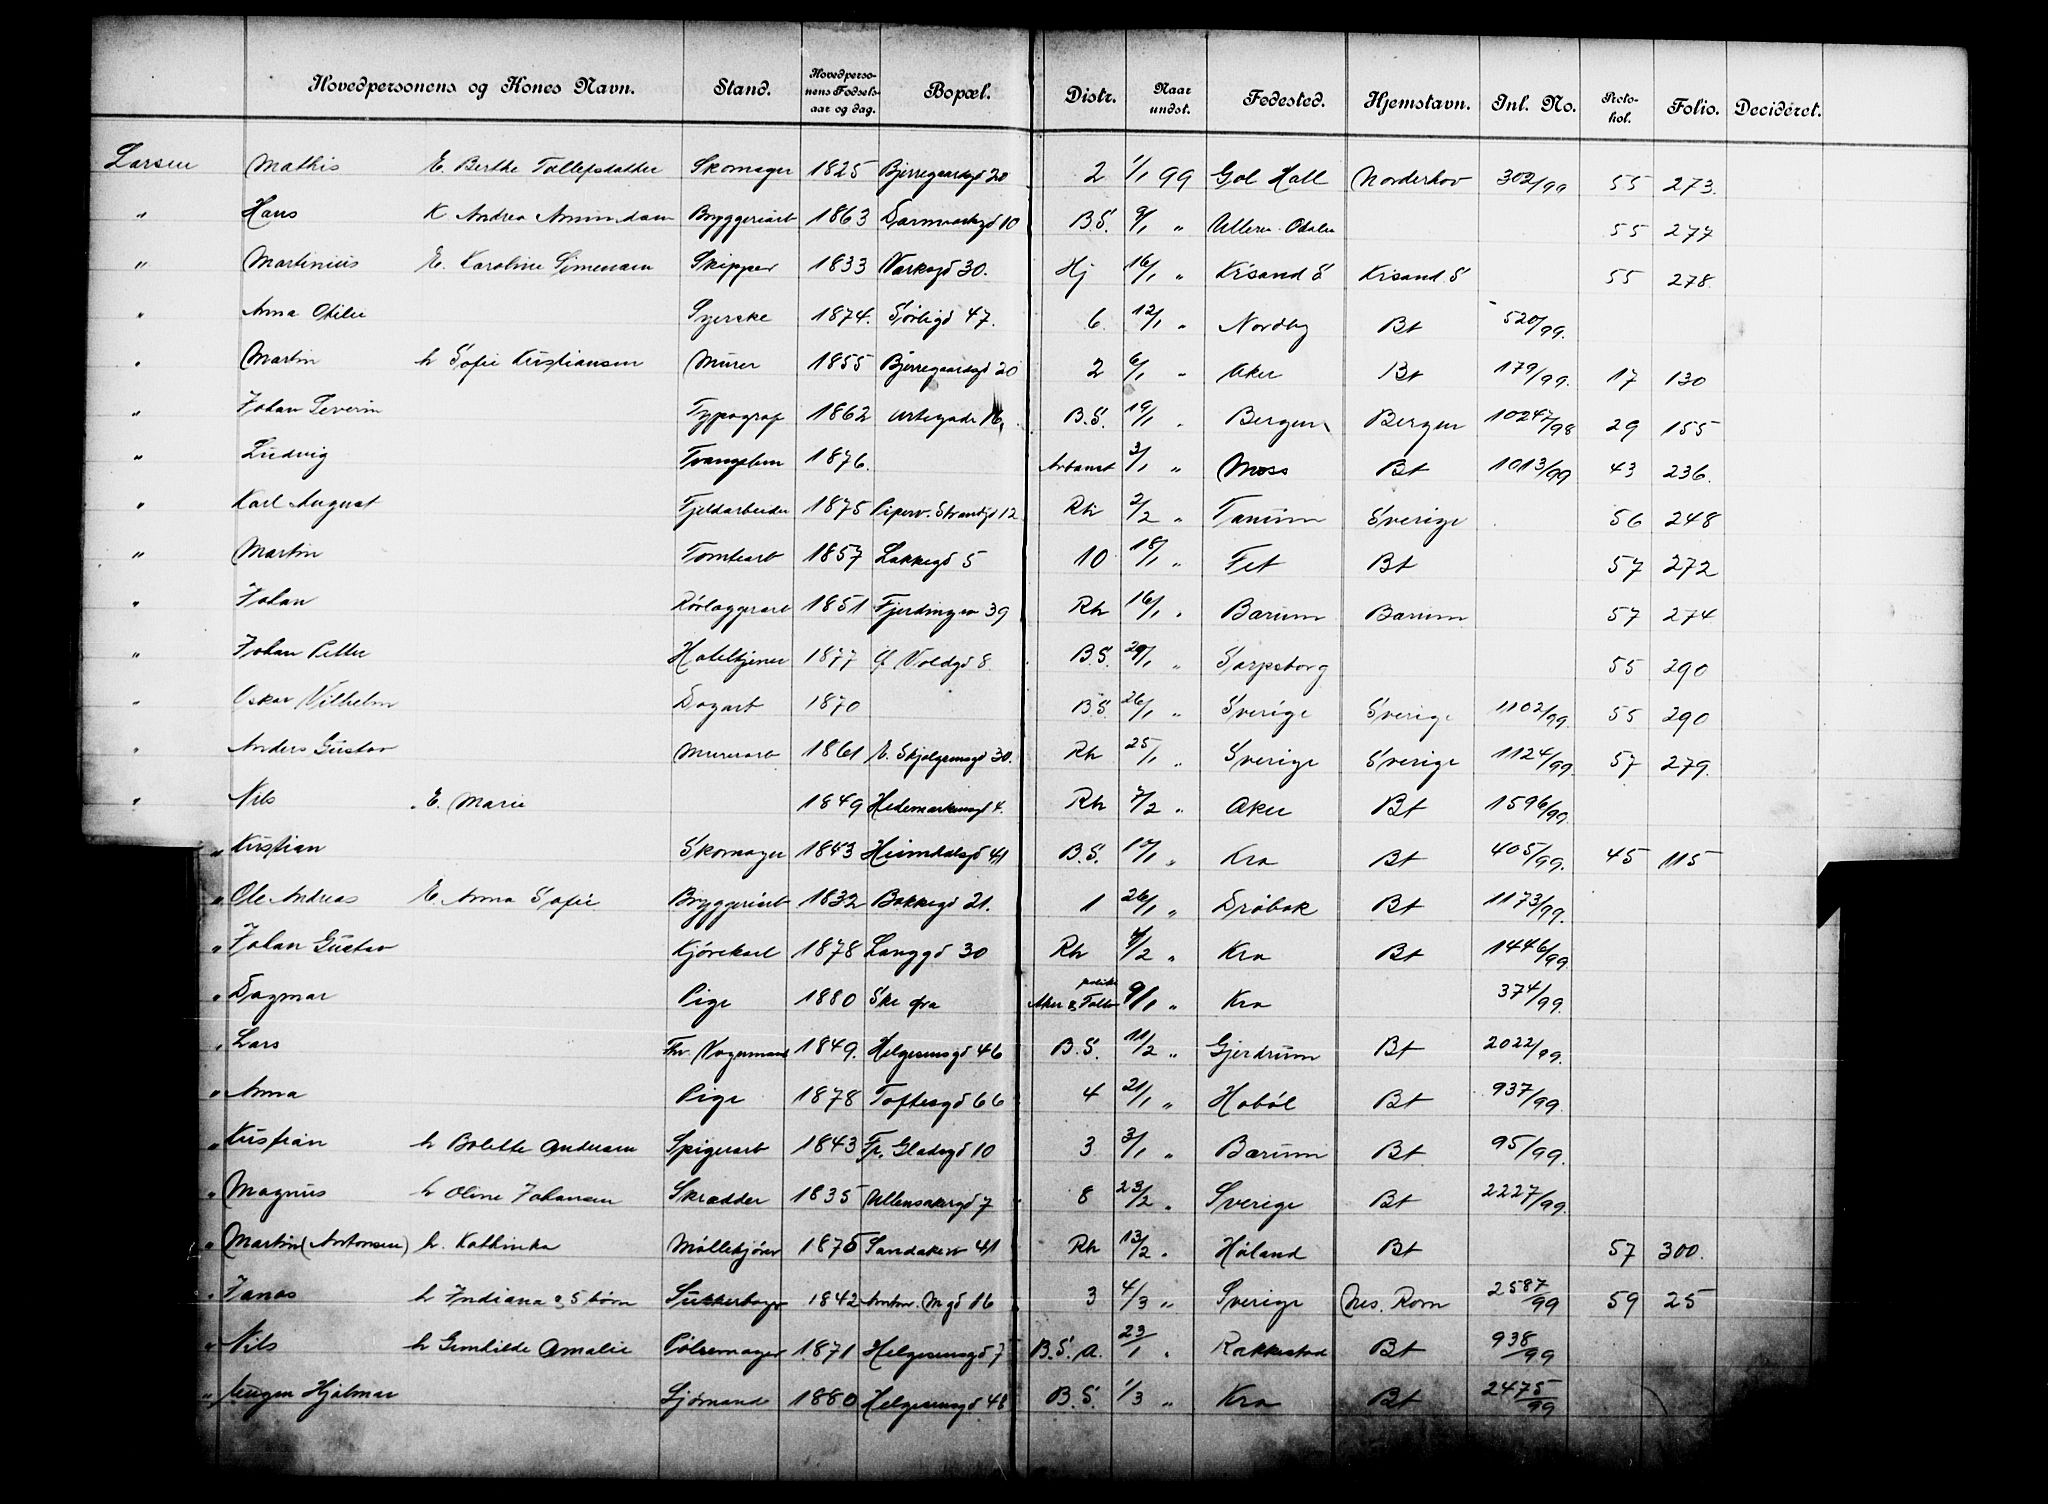 Hovedpersonens og Kones Navn. Stand. Hovedpersonens Fødselsaar og dag. Bopæl. Distr. Naar undst. Fødested. Hjemstavn. Inl. No. Protokol. Folio. Decideret.
Larsen Mathis E. Berthe Tollefsdatter Skomager 1825 Bjerregaardsgd 20 2 1/1 99 Gol Hall Norderhov 302/99 55 273.
" Hans K Andrea Amundsen Bryggeriarb 1863 10 B.S. 9/1 " Ullern Odalen 55 277
" Martinius E. Karoline Simensen Skipper 1833 30. Hj 16/1 " Krsand S Krsand S 55 278.
" Anna Otilie Syerske 1874. Sørligd 47. 6 12/1 " Nordby Bt 520/99.
" Martin h Sofie Kristiansen Murer 1855 Bjerregaardsgd 20 2 6/1 " Aker Bt 179/99. 17 130
" Johan Severin Typograf 1862 Urtegade 16. B.S. 19/1 " Bergen Bergen 10247/98 29 155
" Ludvig Tvangslem 1876. Arbanst 3/1 " Moss Bt 1013/99 43 236.
" Karl August Fjeldarbeider 1875 Piperv. Strandgd 12 Rh 2/2 " Tanum Sverige 56 248
" Martin Tomtearb 1857 Lakkegd 5 10 18/1 " Fet Bt 57 272
" Johan Rørlæggerarb 1851 Fjerdingen 39 Rh 16/1 " Bærum Bærum 57 274
" Johan Petter Hoteltjener 1877 Ø Voldgd 8. B.S. 29/1 " Sarpsborg 55 290
" Oskar Vilhelm Dagarb 1870 B.S. 26/1 " Sverige Sverige 1102/99. 55 290
" Anders Gustav Murerarb 1861 E. Skjolgensgd 30. Rh 25/1 " Sverige Sverige 1124/99. 57 279.
" Nils E. Marie 1849 Hedemarkensgd 4. Rh 7/2 " Aker Bt 1596/99.
" Kristian Skomager 1843 Heimdalsgd 41 B.S. 10/1 " Kra Bt 405/99. 45 115
" Ole Andreas E. Anna Sofie Bryggeriarb 1832 Bakkegd 21. 1 26/1 " Drøbak Bt 1173/99.
" Johan Gustav Kjørekarl 1878 Langgd 30 Rh 4/2 " Kra Bt 1446/99.
" Dagmar Pige 1880 Ske Aker & Follo politi 9/1 " Kra 374/99.
" Lars Fhv. Vognmand 1849. Helgesensgd 46 B.S. 11/2 " Gjerdrum Bt 2022/99.
" Anna Pige 1878 Toftesgd 66 4 21/1 " Hobøl Bt 937/99.
" Kristian h Bolette Andersen Spigerarb 1843 Fr. Gladsgd 10 3 3/1 " Bærum Bt 95/99.
" Magnus h Oline Johansen Skrædder 1835 Ullensakergd 7 8 23/2 " Sverige Bt 2227/99.
" Martin (Antonsen) h. Kathinka Møllekjører 1875 Sandakerv 41 Rh 13/2 " Høland Bt 57 300.
" Jonas h Indiana & 5 børn Sukkerbager 1842 Anton. M gd 16 3 4/3 " Sverige Nes. Rom 2587/99 59 25
" Nils h Gunhilde Amalie Pølsemager 1871 Helgesensgd 7 B.S. A. 23/1 " Rakkestad Bt 938/99
" Hjalmar Sjømand 1880 Helgesensgd 46 B.S. 1/3 " Kra Bt 2475/99